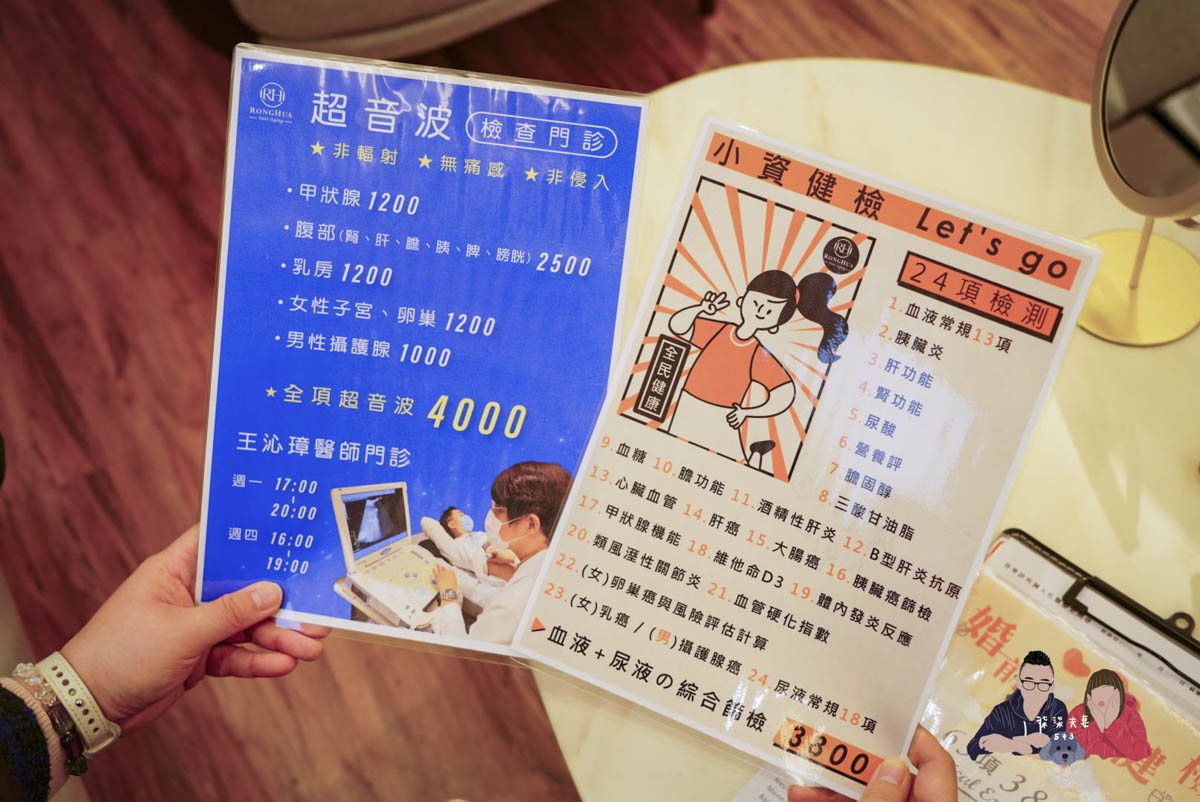 RH
RONGHUA
Anti-Aging
超音波 檢查門診
★非輻射 ★無痛感 ★非侵入
・甲狀腺 1200
・腹部(腎、肝、膽、胰、脾、膀胱) 2500
・乳房 1200
・女性子宮、卵巢 1200
・男性攝護腺 1000
★全項超音波 4000
王沁璋醫師門診
週一 17:00
20:00
週四 16:00
19:00
小資健檢 Let's go
RH
RONGHUA
全民健康
24項檢測
1.血液常規13項
2.胰臟炎
3.肝功能
4.腎功能
5.尿酸
6.營養評
7.膽固醇
8.三酸甘油脂
9.血糖 10.膽功能 11.酒精性肝炎 12.B型肝炎抗原
13.心臟血管 14.肝癌 15.大腸癌 16.胰臟癌篩檢
17.甲狀腺機能 18.維他命D3 19.體內發炎反應
20.類風溼性關節炎 21.血管硬化指數
22.(女)卵巢癌與風險評估計算
23.(女)乳癌/(男)攝護腺癌 24.尿液常規18項
血液+尿液の綜合篩檢
3300
婚前
健檢
項 38
深深夫妻
543